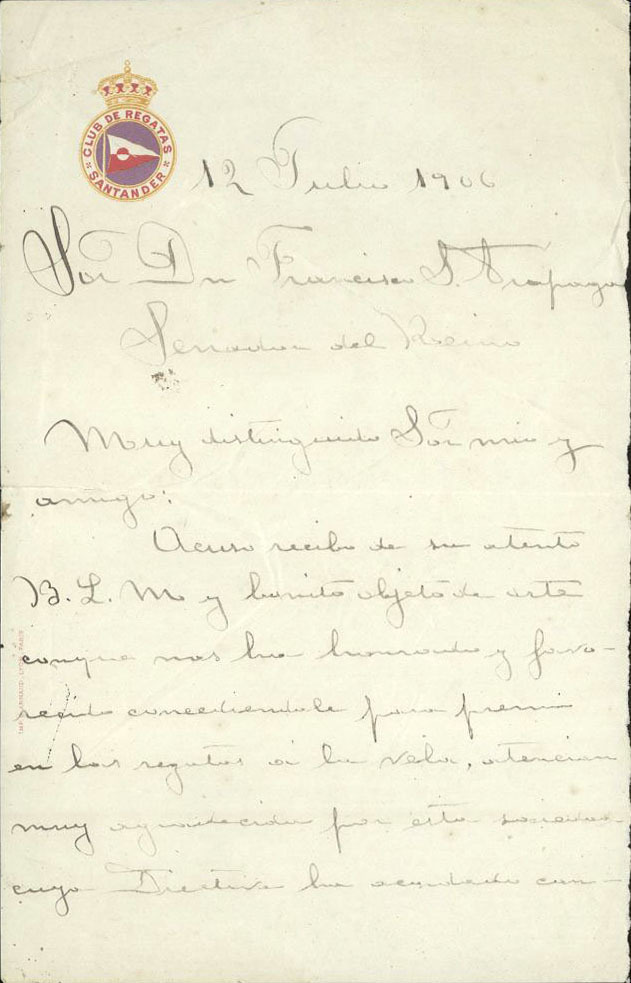 CLUB DE REGATAS
SANTANDER
12 Julio 1906
Sor Dn Francisco S. Trápaga
Senador del Reino
Muy distinguido Sor mio y
amigo:
Acuso recibo de su atento
B. L. M y bonito objeto de arte
conque nos ha honrado y favo-
recido concediendole para premio
en las regatas a la vela, atencion
muy agradecida por esta sociedad
cuya Directiva ha acordado con-